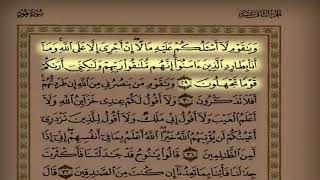 سورة هود
وَيَٰقَوۡمِ لَآ أَسۡـَٔلُكُمۡ عَلَيۡهِ مَالًاۖ إِنۡ أَجۡرِيَ إِلَّا عَلَى ٱللَّهِۚ وَمَآ
أَنَا۠ بِطَارِدِ ٱلَّذِينَ ءَامَنُوٓاْۚ إِنَّهُم مُّلَٰقُواْ رَبِّهِمۡ وَلَٰكِنِّيٓ أَرَىٰكُمۡ
قَوۡمٗا تَجۡهَلُونَ ٢٩ وَيَٰقَوۡمِ مَن يَنصُرُنِي مِنَ ٱللَّهِ إِن طَرَدتُّهُمۡۚ
أَفَلَا تَذَكَّرُونَ ٣٠ وَلَآ أَقُولُ لَكُمۡ عِندِي خَزَآئِنُ ٱللَّهِ وَلَآ
أَعۡلَمُ ٱلۡغَيۡبَ وَلَآ أَقُولُ إِنِّي مَلَكٞ وَلَآ أَقُولُ لِلَّذِينَ تَزۡدَرِيٓ
أَعۡيُنُكُمۡ لَن يُؤۡتِيَهُمُ ٱللَّهُ خَيۡرًاۖ ٱللَّهُ أَعۡلَمُ بِمَا فِيٓ أَنفُسِهِمۡ إِنِّيٓ إِذٗا
لَّمِنَ ٱلظَّٰلِمِينَ ٣١ قَالُواْ يَٰنُوحُ قَدۡ جَٰدَلۡتَنَا فَأَكۡثَرۡتَ
جِدَٰلَنَا فَأۡتِنَا بِمَا تَعِدُنَآ إِن كُنتَ مِنَ ٱلصَّٰدِقِينَ ٣٢